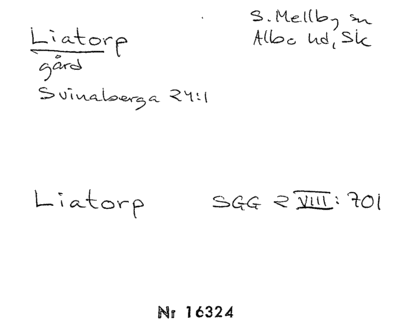 Liatorp
S. Mellby sn
Albo hd, Sk
gård
Svinaberga 24:1
Liatorp SGG 2 VIII: 701
Nr 16324